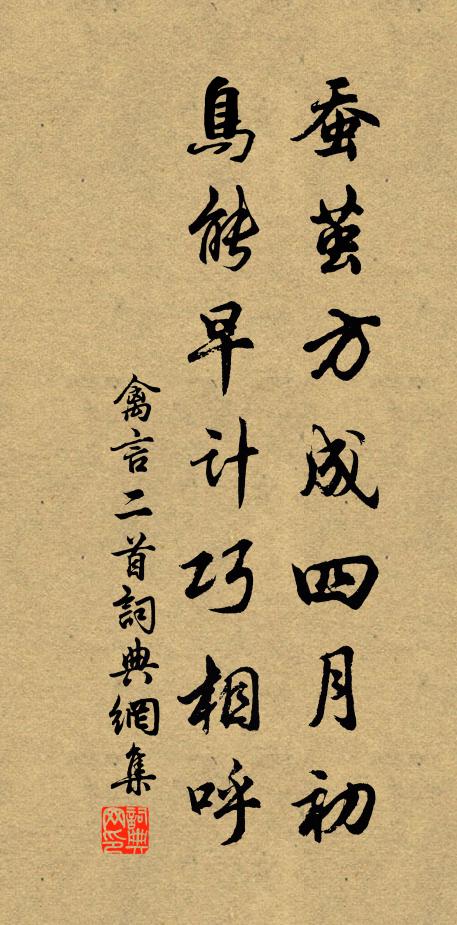 蚕茧方成四月初
鳥能早计巧相呼
禽言二首詞典網集
詞典网印